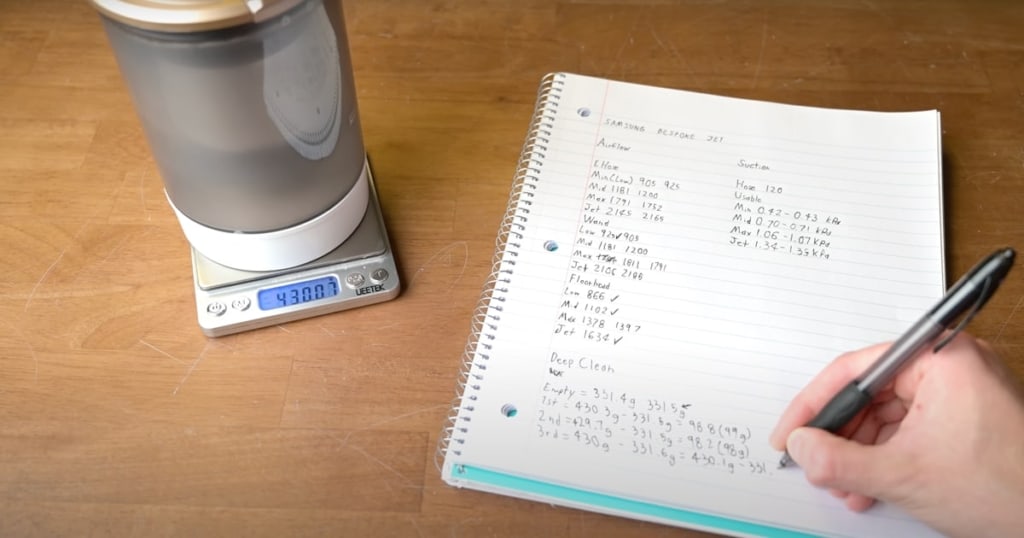 43.007
UEETEK
SAMSUNG BESPOKE JET
Airflow
Hose
Min (Low) 905 925
Mid 1181 1200
Max 1791 1752
Jet 2145 2165
Wand
Low 925✓ 905
Mid 1181 1200
Max 1811 1791
Jet 2106 2188
Floorhead
Low 866 ✓
Mid 1102 ✓
Max 1378 1397
Jet 1634 ✓
Suction
Hose 120
Usable
Min 0.42 - 0.43 kPa
Mid 0.70 - 0.71 kPa
Max 1.06 - 1.07 kPa
Jet 1.34 - 1.35 kPa
Deep Clean
Empty = 331.4g 331.5g
1st = 430.3g - 331.5g = 98.8 (99g)
2nd = 429.7g - 331.5g = 98.2 (98g)
3rd = 430g - 331.6g = 430.1g - 331.